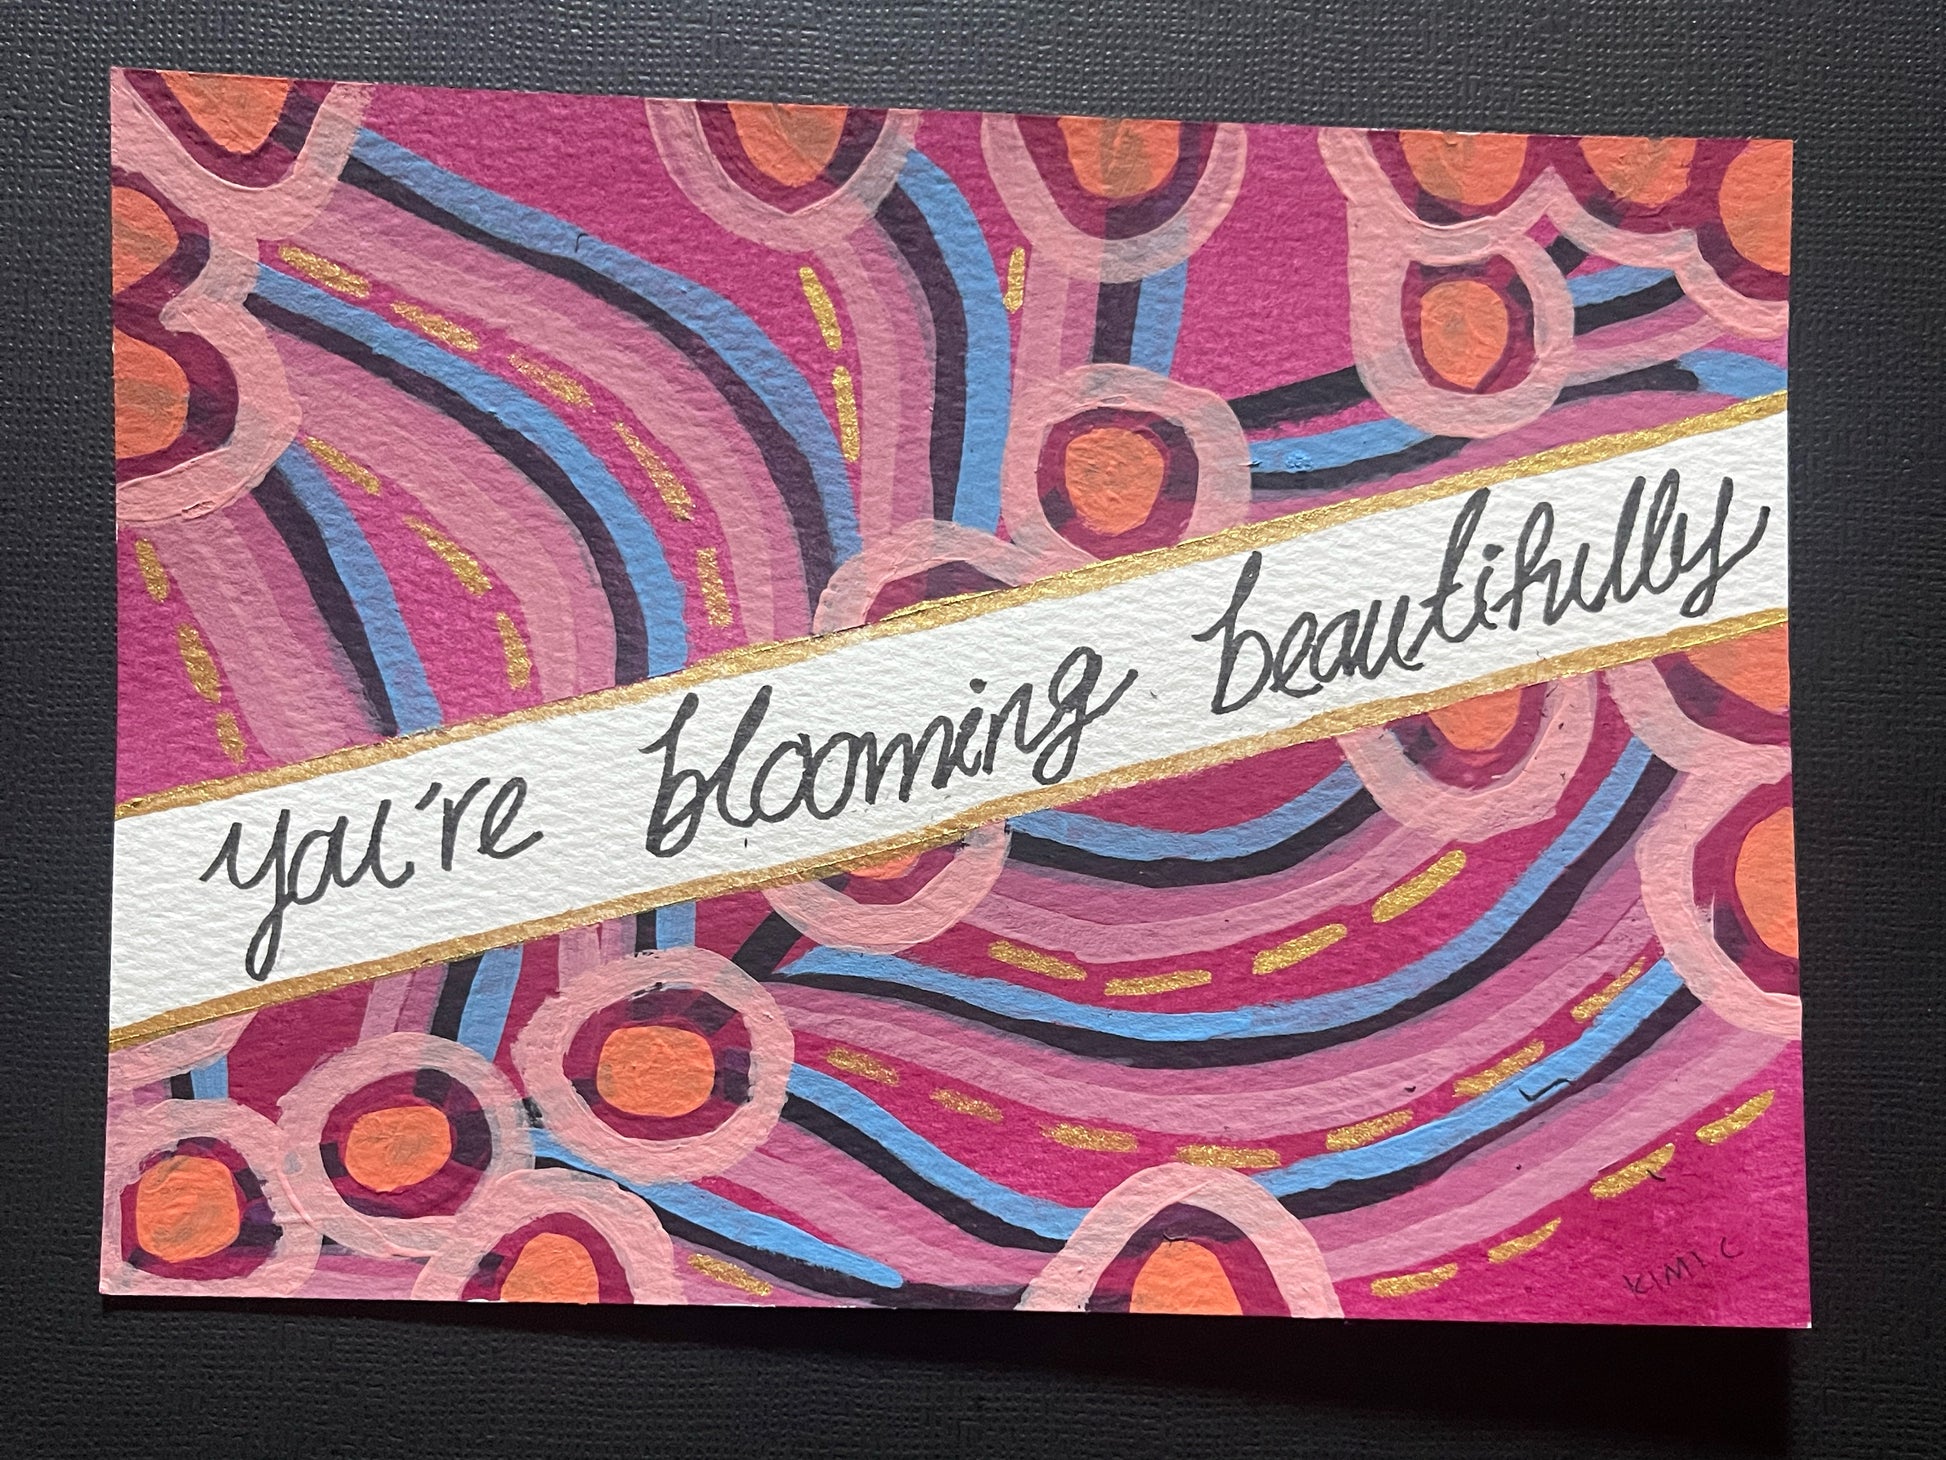 you're blooming beautifully
KIMI. C